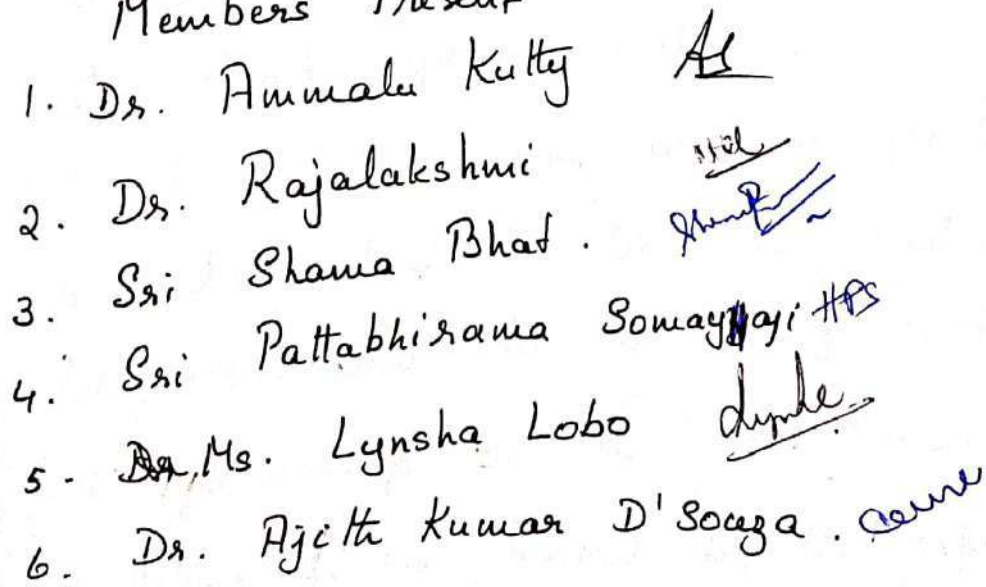 Members Present
1. Dr. Ammalu Kutty
2. Dr. Rajalakshmi
3. Sri Shama Bhat.
4. Sri Pattabhirama Somayaji HPS
5- Ms. Lynsha Lobo
6. Dr. Ajith Kumar D'Souza.